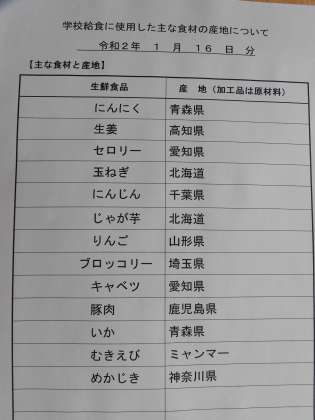 学校給食に使用した主な食材の産地について
令和２年 １ 月 １６ 日 分
【主な食材と産地】
生鮮食品 産 地（加工品は原材料）
にんにく 青森県
生姜 高知県
セロリー 愛知県
玉ねぎ 北海道
にんじん 千葉県
じゃが芋 北海道
りんご 山形県
ブロッコリー 埼玉県
キャベツ 愛知県
豚肉 鹿児島県
いか 青森県
むきえび ミャンマー
めかじき 神奈川県